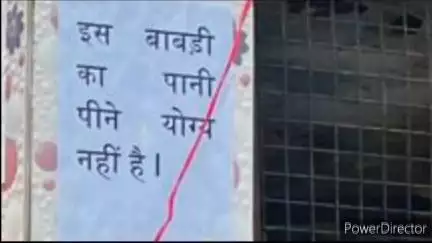 इस बावड़ी
का पानी
पीने योग्य
नहीं है।
PowerDirector